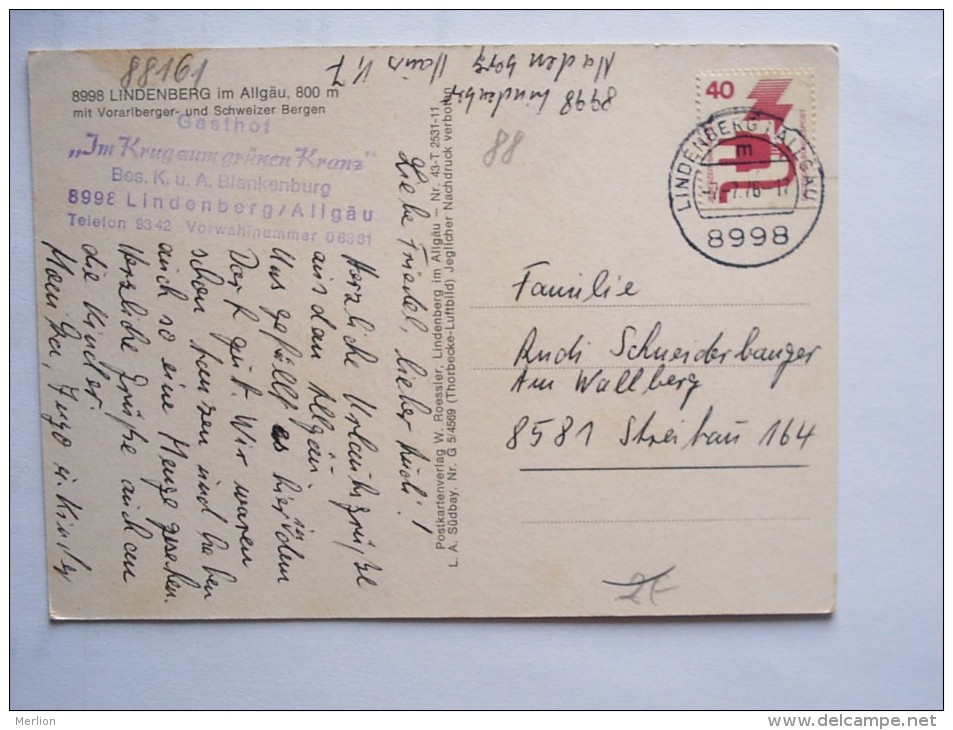 88161
8998 LINDENBERG im Allgäu, 800 m
mit Vorarlberger- und Schweizer Bergen
Gasthof
„Im Krug zum grünen Kranz"
Bes. K. u. A. Blankenburg
8998 Lindenberg/Allgäu
Telefon 9342 Vorwahlnummer 08381
Liebe Friedel, lieber Rudi!
Herzliche Urlaubsgrüße
aus dem Allgäu.
Uns gefällt es hier in dem
Dorf gut. Wir waren
schon tanzen und haben
auch so eine Menge gesehen.
Herzliche Grüße auch an
die Kinder
Ingo u.
8998 Lindenberg
Haus
Postkartenverlag W. Roessler, Lindenberg im Allgäu – Nr. 43-T 2531-11
L. A. Südbay. Nr. G 5/4569 (Thorbecke-Luftbild) Jeglicher Nachdruck verboten
88
40
LINDENBERG i ALLGÄU
m
7.76 - 17
8998
Familie
Rudi Schneiderbanger
Am Wallberg
8581 Streitau 164
Merlion
http://www.delcampe.net